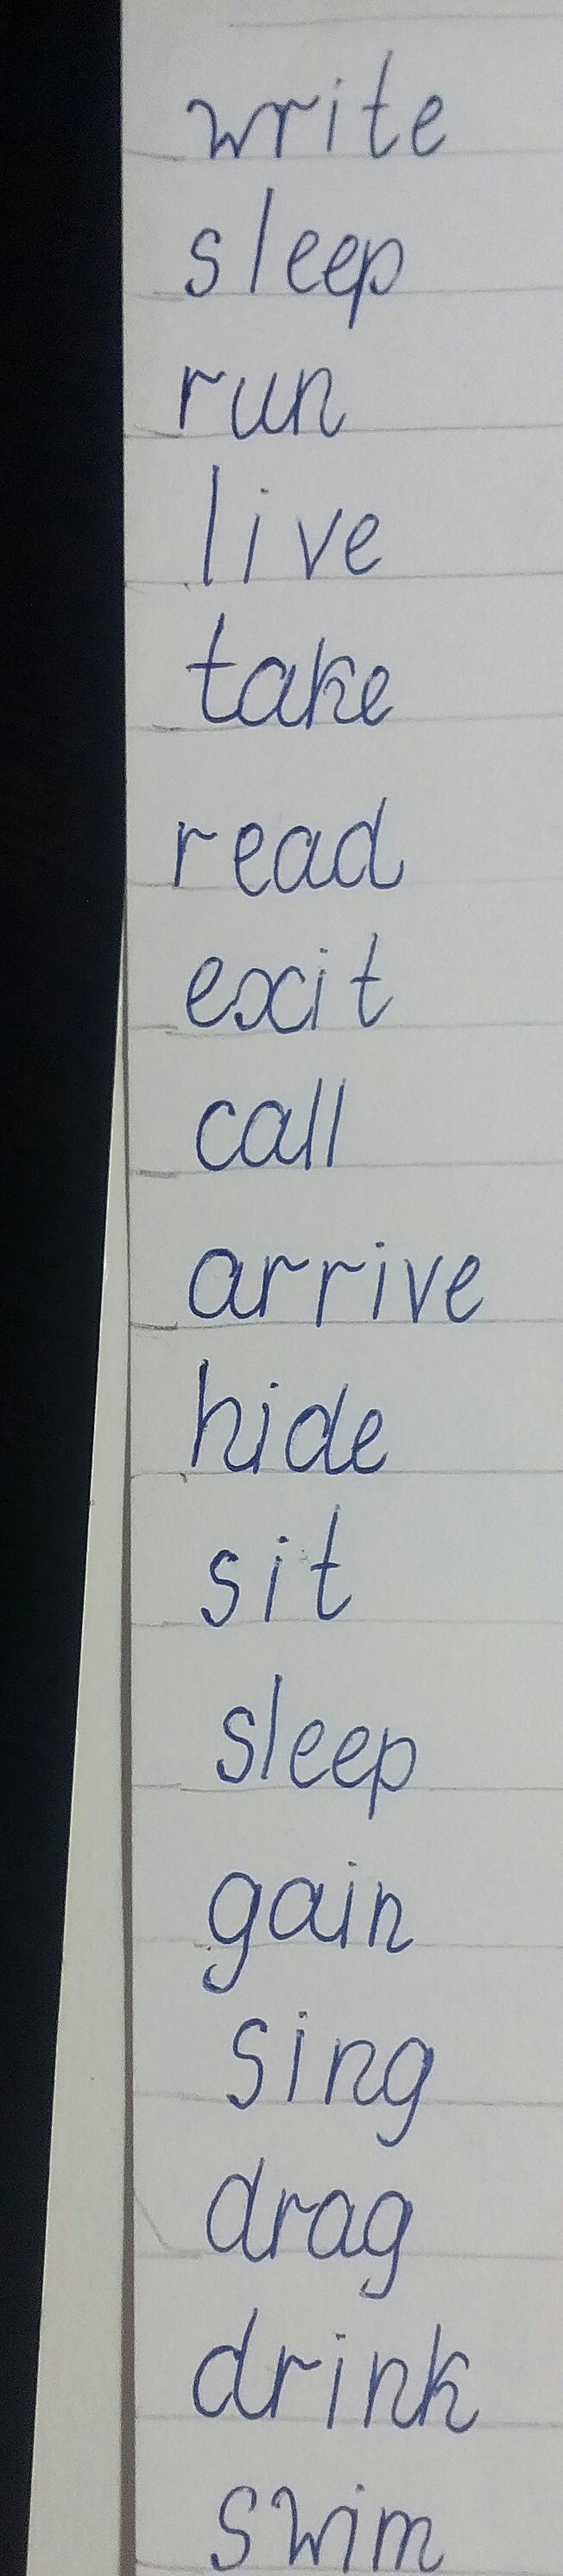 write
sleep
run
live
take
read
exit
call
arrive
hide
sit
sleep
gain
sing
drag
drink
swim